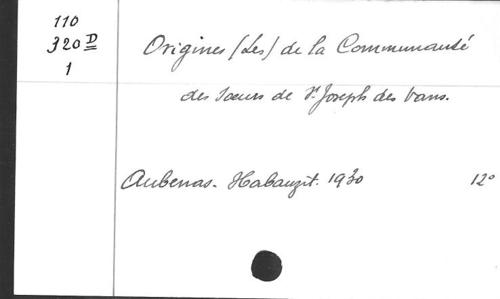 110
320 D
1
Origines (Les) de la Communauté
des Soeurs de St Joseph des Vans.
Aubenas. Habauzit. 1930 12°